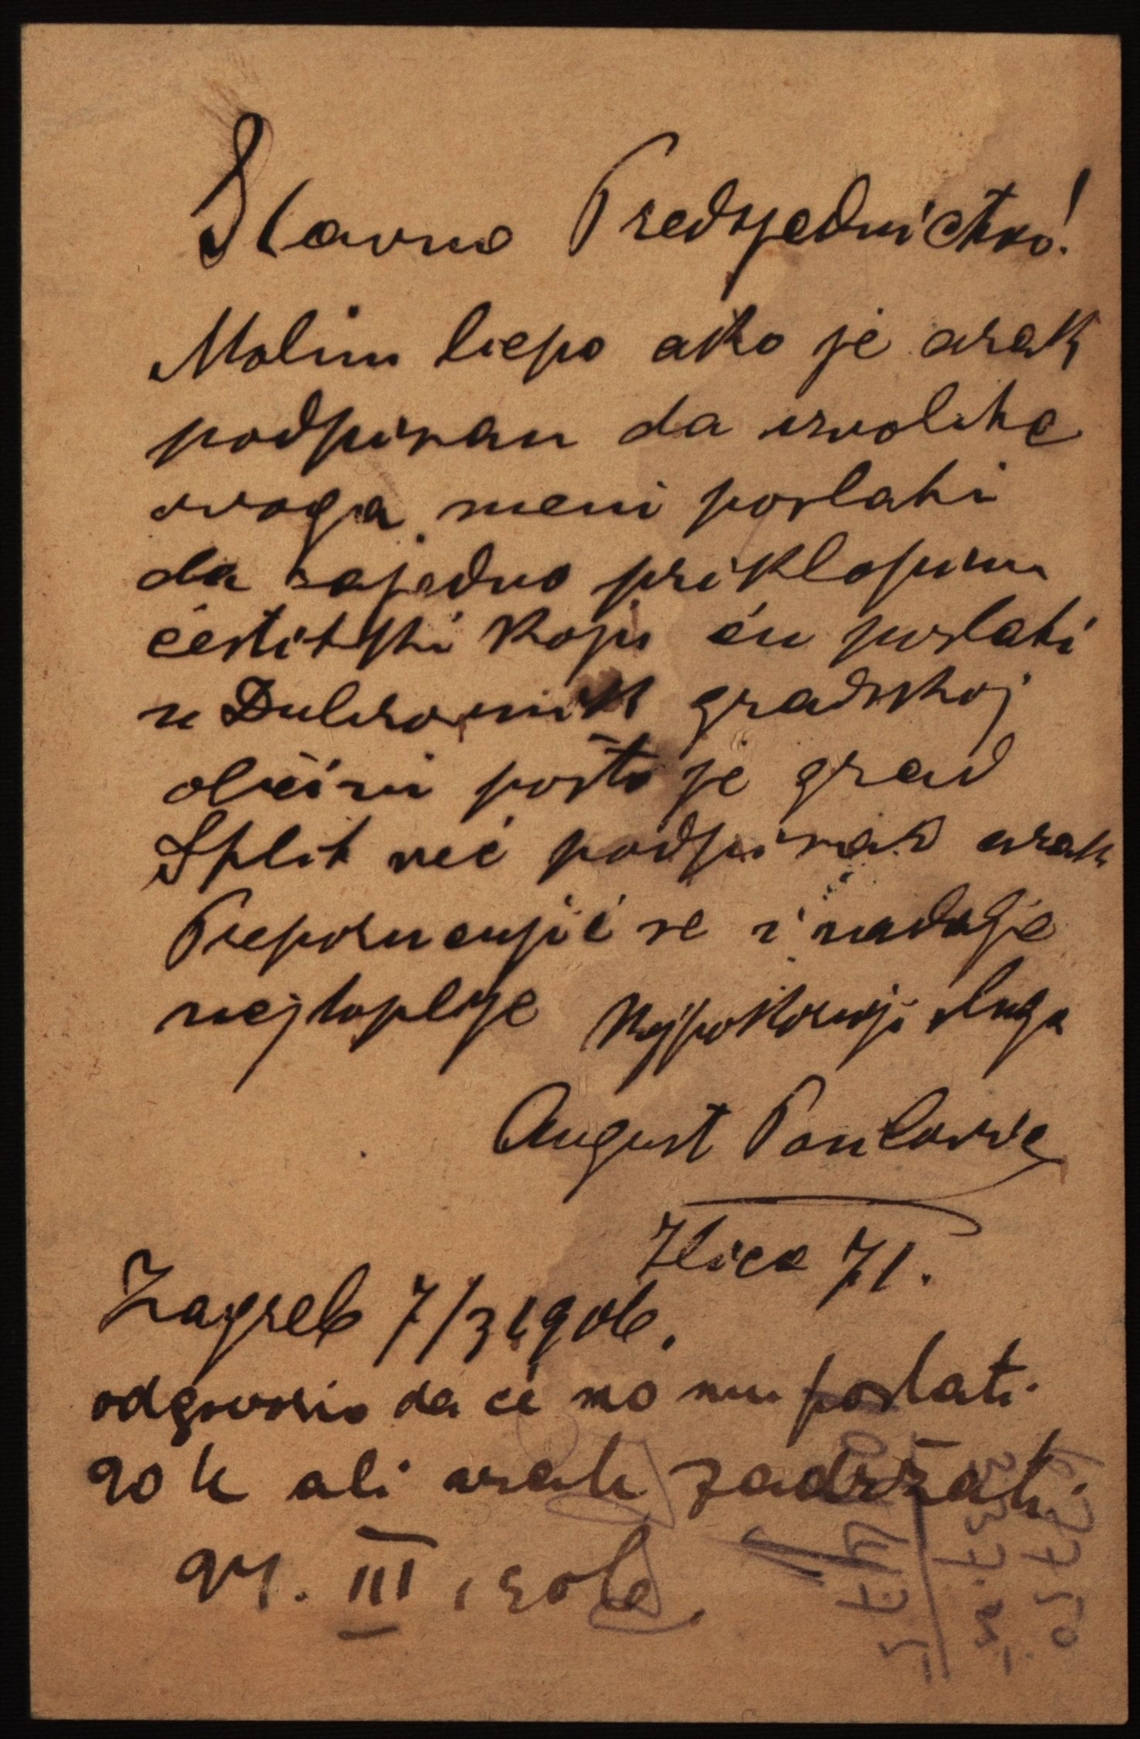 Slavno Predsjedničtvo!
Molim liepo ako je arak
podpisan da izvolite
ovoga meni poslati
da zajedno priklopim
čestitki koju ću poslati
u Dubrovnik gradskoj
obćini pošto je grad
Split već podpisao arak
Preporučujuć se i nadalje
najtoplije najpokorniji sluga
August Pavlović
Ilica 71.
Zagreb 7/3 1906.
odgovorio da će mo mu poslati
20 k ali arak zadržati.
III 1906.